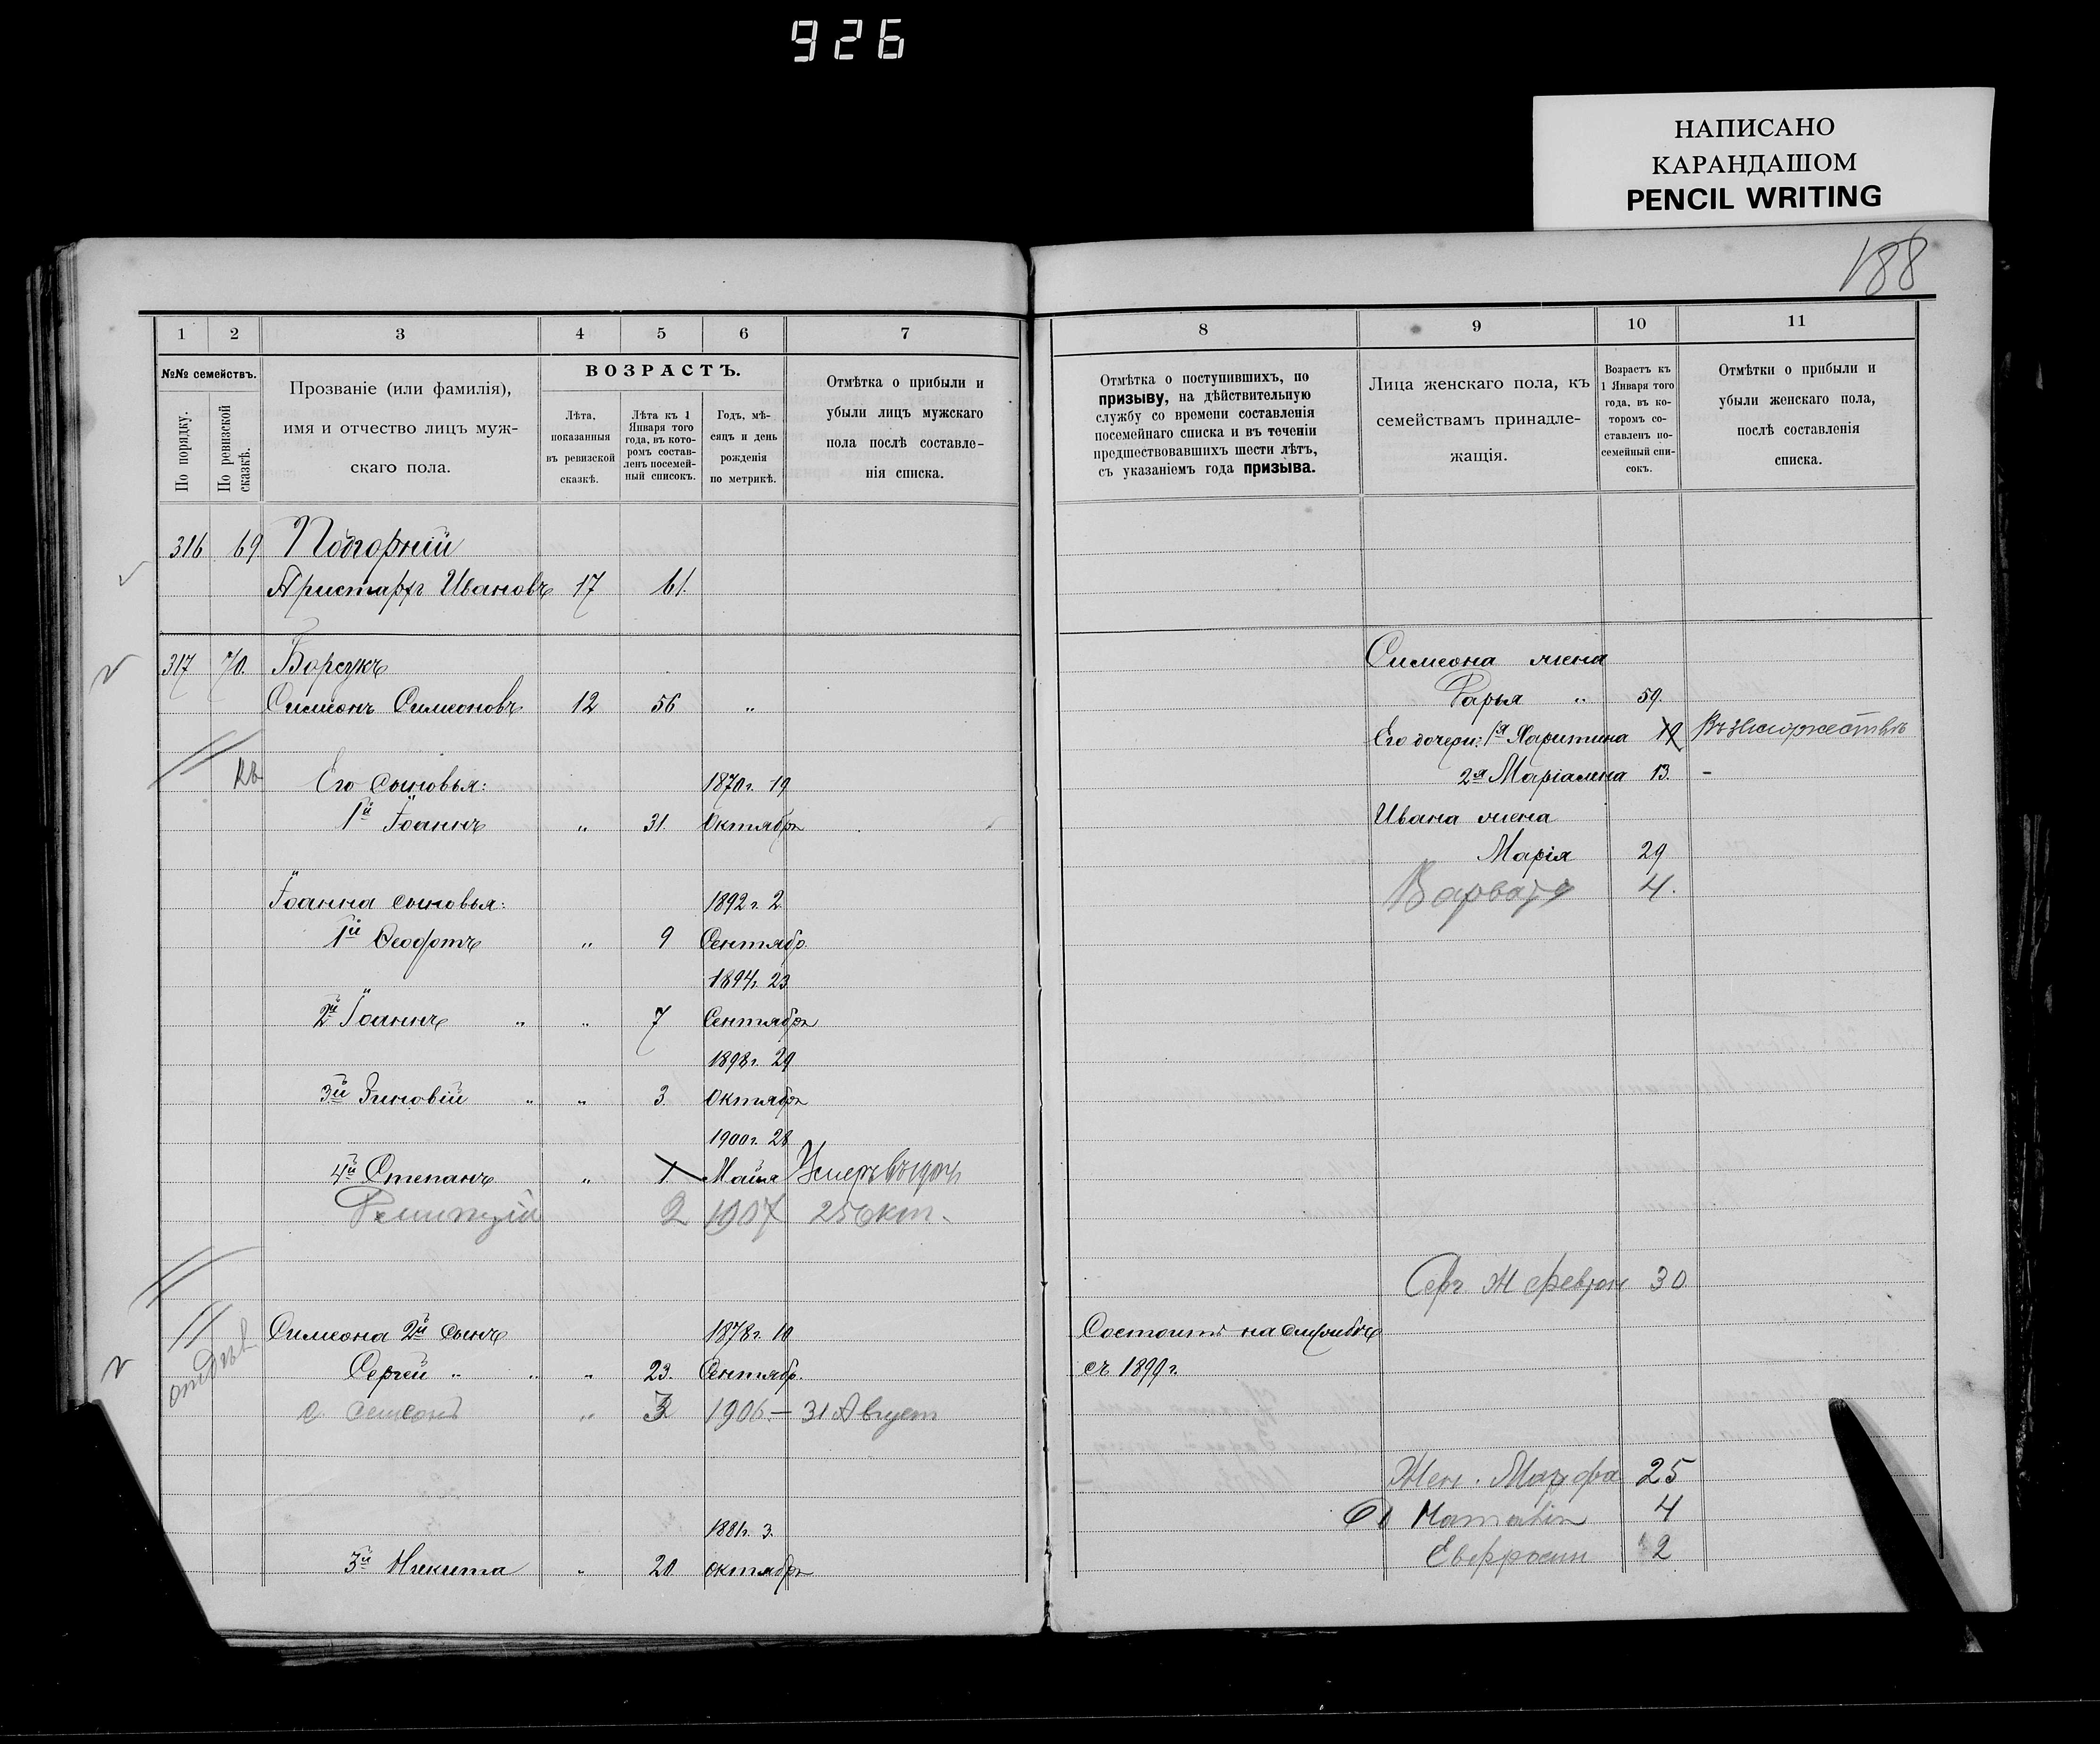 926
НАПИСАНО
КАРАНДАШОМ
PENCIL WRITING
188
1 2 3 4 5 6 7
№№ семействъ.
По порядку.
По ревизской сказкѣ.
Прозваніе (или фамилія),
имя и отчество лицъ муж-
скаго пола.
ВОЗРАСТЪ.
Лѣта,
показанныя
въ ревизской
сказкѣ.
Лѣта къ 1
Января того
года, въ кото-
ромъ состав-
ленъ посемей-
ный списокъ.
Годъ, мѣ-
сяцъ и день
рожденія
по метрикѣ.
Отмѣтка о прибыли и
убыли лицъ мужскаго
пола послѣ составле-
нія списка.
316 69 Подгорний
Аристархъ Ивановъ 17 61.
317 70. Борсукъ
Симеонъ Симеоновъ 12 56 "
Его сыновья: 1870 г. 19
1й Іоаннъ " 31. Октября
Іоанна сыновья: 1892 г. 2
1й Ѳеофотъ " 9 Сентябр.
1894 г. 23
2й Іоаннъ " " 7 Сентября
1898 г. 29
3й Зиновій " " 3 Октября
1900 г. 28
4й Степанъ " 1 Мая Умеръ
2 1907 25 Окт.
отдѣл
Симеона 2й сынъ 1878 г. 10
Сергей " " " 23. Сентябр.
с. Семеонъ " 3 1906 — 31 Август
1881 г. 3.
3й Никита " 20 октября
8 9 10 11
Отмѣтка о поступившихъ, по
призыву, на дѣйствительную
службу со времени составленія
посемейнаго списка и въ теченіи
предшествовавшихъ шести лѣтъ,
съ указаніемъ года призыва.
Лица женскаго пола, къ
семействамъ принадле-
жащія.
Возрастъ къ
1 Января того
года, въ ко-
торомъ со-
ставленъ по-
семейный спи-
сокъ.
Отмѣтки о прибыли и
убыли женскаго пола,
послѣ составленія
списка.
Симеона жена
Дарья " 59.
Его дочери: 1я Харитина 19 Въ замужествѣ
2я Маріамна 13. -
Ивана жена
Марія 29
Варвара 4.
Сер. Ж Феврон 30
Состоитъ на службѣ
съ 1899 г.
Жен. Марфа 25
4
Евфросин 2